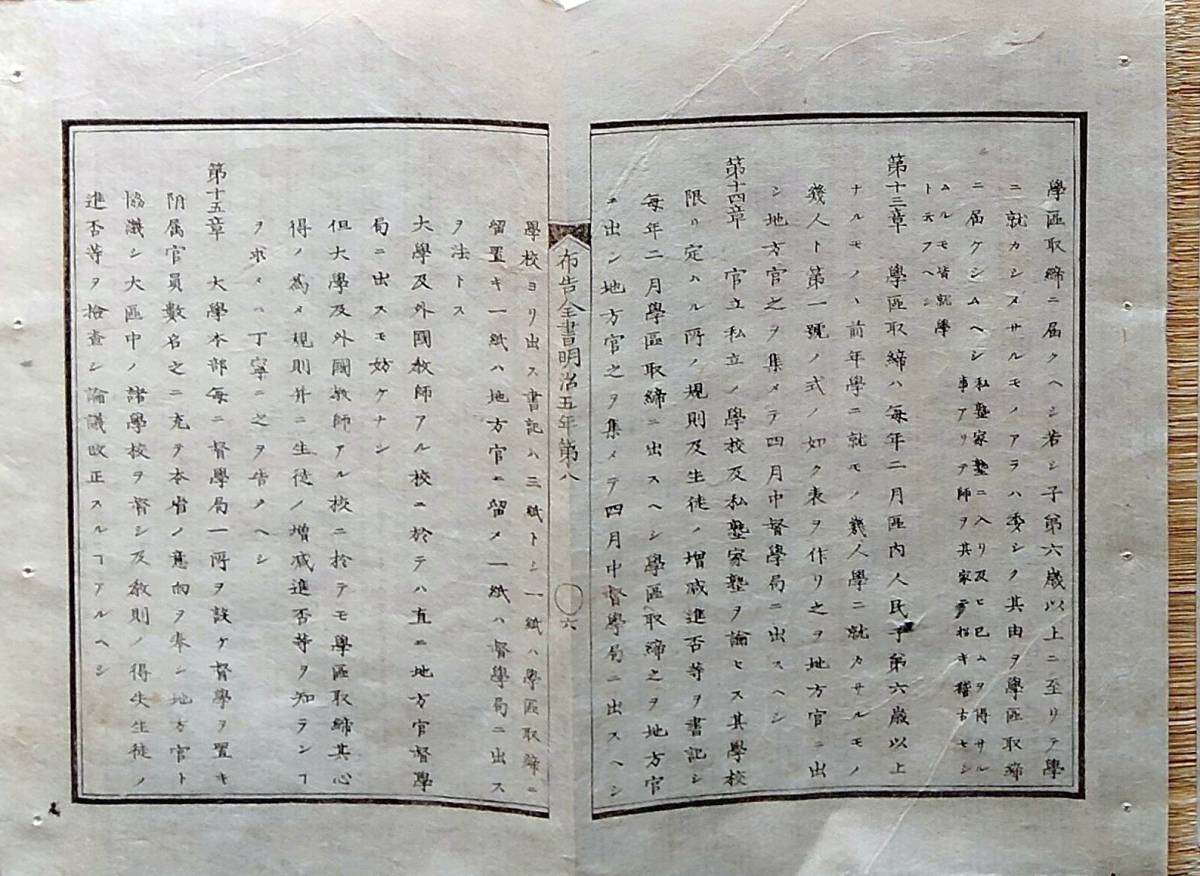 學區取締ニ届クヘシ若シ子弟六歳以上ニ至リテ學
ニ就カシメサルモノアラハ委シク其由ヲ學區取締
ニ届ケシムヘシ私塾家塾ニ入リ及ヒ已ムヲ得サル
事アリテ師ヲ其家ニ招キ稽古セシ
ムルモ皆就學
ト云フヘシ
第十三章 學區取締ハ毎年二月區内人民子弟六歳以上
ナルモノヽ前年學ニ就モノ幾人學ニ就カサルモノ
幾人ト第一號ノ式ノ如ク表ヲ作リ之ヲ地方官ニ出
シ地方官之ヲ集メテ四月中督學局ニ出スヘシ
第十四章 官立私立ノ學校及私塾家塾ヲ論セス其學校
限リ定ハル所ノ規則及生徒ノ増減進否等ヲ書記シ
毎年二月學區取締ニ出スヘシ學區取締之ヲ地方官
ニ出シ地方官之ヲ集メテ四月中督學局ニ出スヘシ
布告全書明治五年第八 〇六
學校ヨリ出ス書記ハ三紙トシ一紙ハ學區取締ニ
留置キ一紙ハ地方官ニ留メ一紙ハ督學局ニ出ス
ヲ法トス
大學及外國教師アル校ニ於テハ直ニ地方官督學
局ニ出スモ妨ケナシ
但大學及外國教師アル校ニ於テモ學區取締其心
得ノ爲メ規則并ニ生徒ノ増減進否等ヲ知ランヿ
ヲ求メハ丁寧ニ之ヲ告クヘシ
第十五章 大學本部毎ニ督學局一所ヲ設ケ督學ヲ置キ
附属官員數名之ニ充テ本省ノ意向ヲ奉シ地方官ト
協議シ大區中ノ諸學校ヲ督シ及教則ノ得失生徒ノ
進否等ヲ檢査シ論議改正スルヿアルヘシ